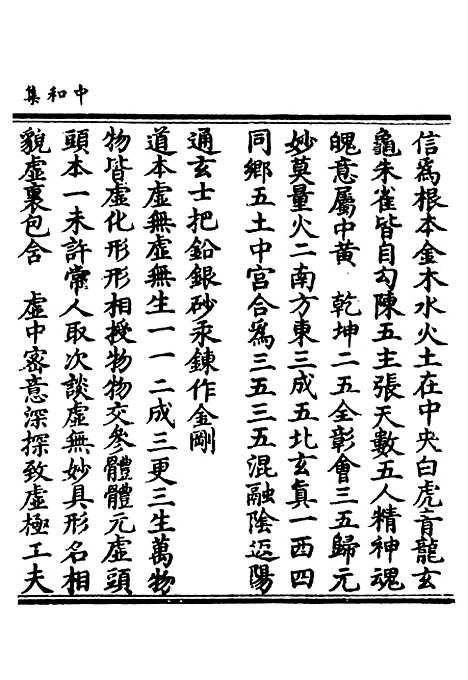 中和集
信爲根本金木水火土在中央白虎青龍玄
龜朱雀皆自勾陳五主張天數五人精神魂
魄意屬中黃　乾坤二五全彰會三五歸元
妙莫量火二南方東三成五北玄真一西四
同鄉五土中宮合爲三五三五混融陰返陽
通玄士把鉛銀砂汞鍊作金剛
道本虛無虛無生一一二成三更三生萬物
物皆虛化形形相授物物交參體體元虛頭
頭本一未許常人取次談虛無妙具形名相
貌虛裏包含　虛中密意深探致虛極工夫